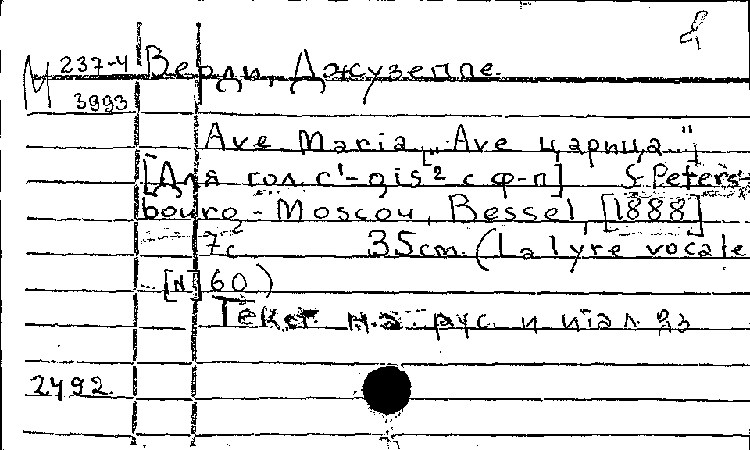 М 237-4 Верди, Джузеппе.
3993
Ave Maria [„Ave царица"]
[Для гол. c¹-gis² с ф-п] S. Peters-
bourg-Moscou, Bessel, [1888]
7с 35cm. (La lyre vocale
[N] 60)
Текст на рус. и итал. яз
2492.